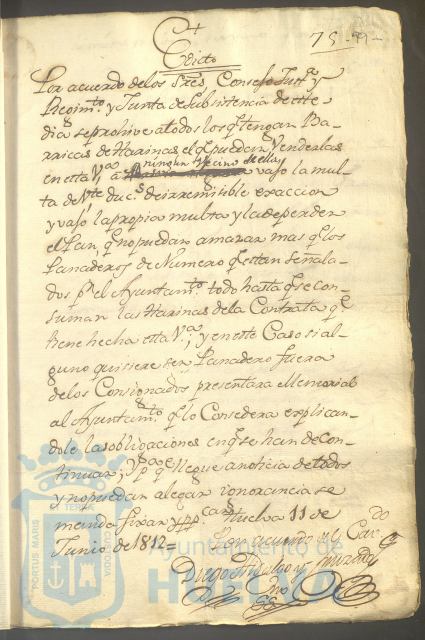 75. 99
Edicto
Por acuerdo delos Sres. Consejo Justa. y
Regimto. y Junta de Subsistencia de este
dia se prohive a todos los qe. tengan Ba-
rricas de Harinas el qe. puedan Venderlas
en esta Va. a ningun Vecino de ella vajo la mul-
ta de Vte. ducs. de irremisible exaccion
y vajo la propia multa y la de perder
el Pan, qe. no puedan amazar mas qe. los
Panaderos de Numero qe. estan señala-
dos pr. el Ayuntamto. todo hasta qe. se con-
suman las Harinas dela Contrata qe.
tiene hecha esta Va.; y en este Caso si al-
guno quisiere ser Panadero fuera
delos Consignados presentara Memorial
al Ayuntamto. qe. lo Consedera explican-
dole las obligaciones en qe. se han de con-
tinuar; y pa. qe. llegue a noticia de todos
y no puedan alegar ignorancia se
manda fixar Huelva 11 de
Junio de 1812=
Por acuerdo del Cavdo.
Diego Hidalgo y
PORTUS MARIS
TERRAE CUSTODIA
Ayuntamiento de
HUELVA